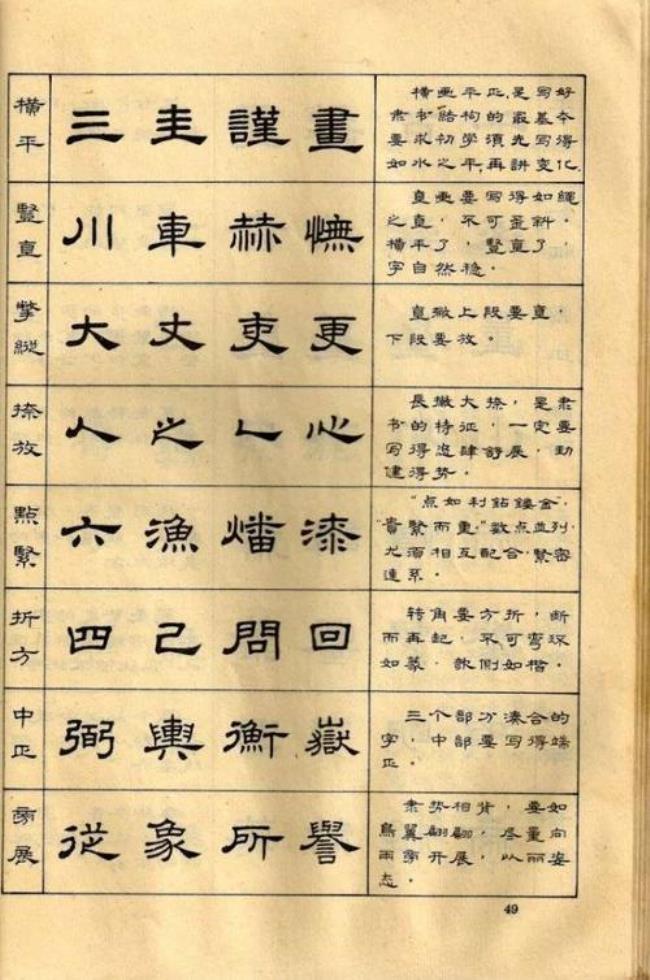 橫平
三 圭 謹 畫
横画平正,是写好
隶书結构的最基本
要求初学須先写得
如水之平,再讲变化.
豎直
川 車 赫 憮
直画要写得如繩
之直，不可歪斜。
横平了，豎直了，
字自然稳。
撆縱
大 丈 吏 更
直撇上段要直，
下段要放。
捺放
人 之 心
長撇大捺，是隶
书的特征，一定要
写得恣肆舒展，勁
健得势。
點緊
六 漁 燔 漆
“点如利鉆鏤金”，
“貴緊而重。”数点並列，
尤須相互配合，緊密
連系。
折方
四 己 問 回
转角要方折，断
而再起，不可弯环
如篆，欹侧如楷。
中正
弼 輿 衡 嶽
三个部分湊合的
字，中部要写得端
正。
旁展
從 象 所 譽
隶势相背，要如
鳥翼翩翩，尽量向
兩旁开展，以丽姿
态。
49